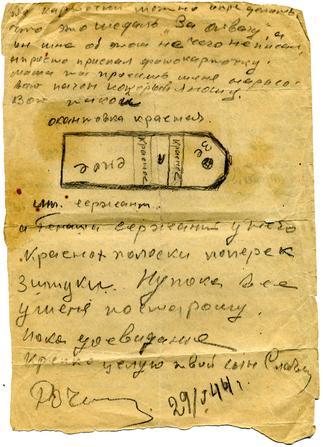 можно определить
что это медаль "За отвагу, а
он мне об этом не чего не писал,
просто прислал фотокарточку.
мама ты просиш меня нарисо-
вать погон который я ношу.
Вот такой
окантовка красная.
поле
красное
л
красное
мл. сержант.
а сержант у него
красных полоски поперек
3 штуки. Ну пока все
у меня по старому.
Пока до свидания
Крепко целую твой сын Слава
29/V 44 г.